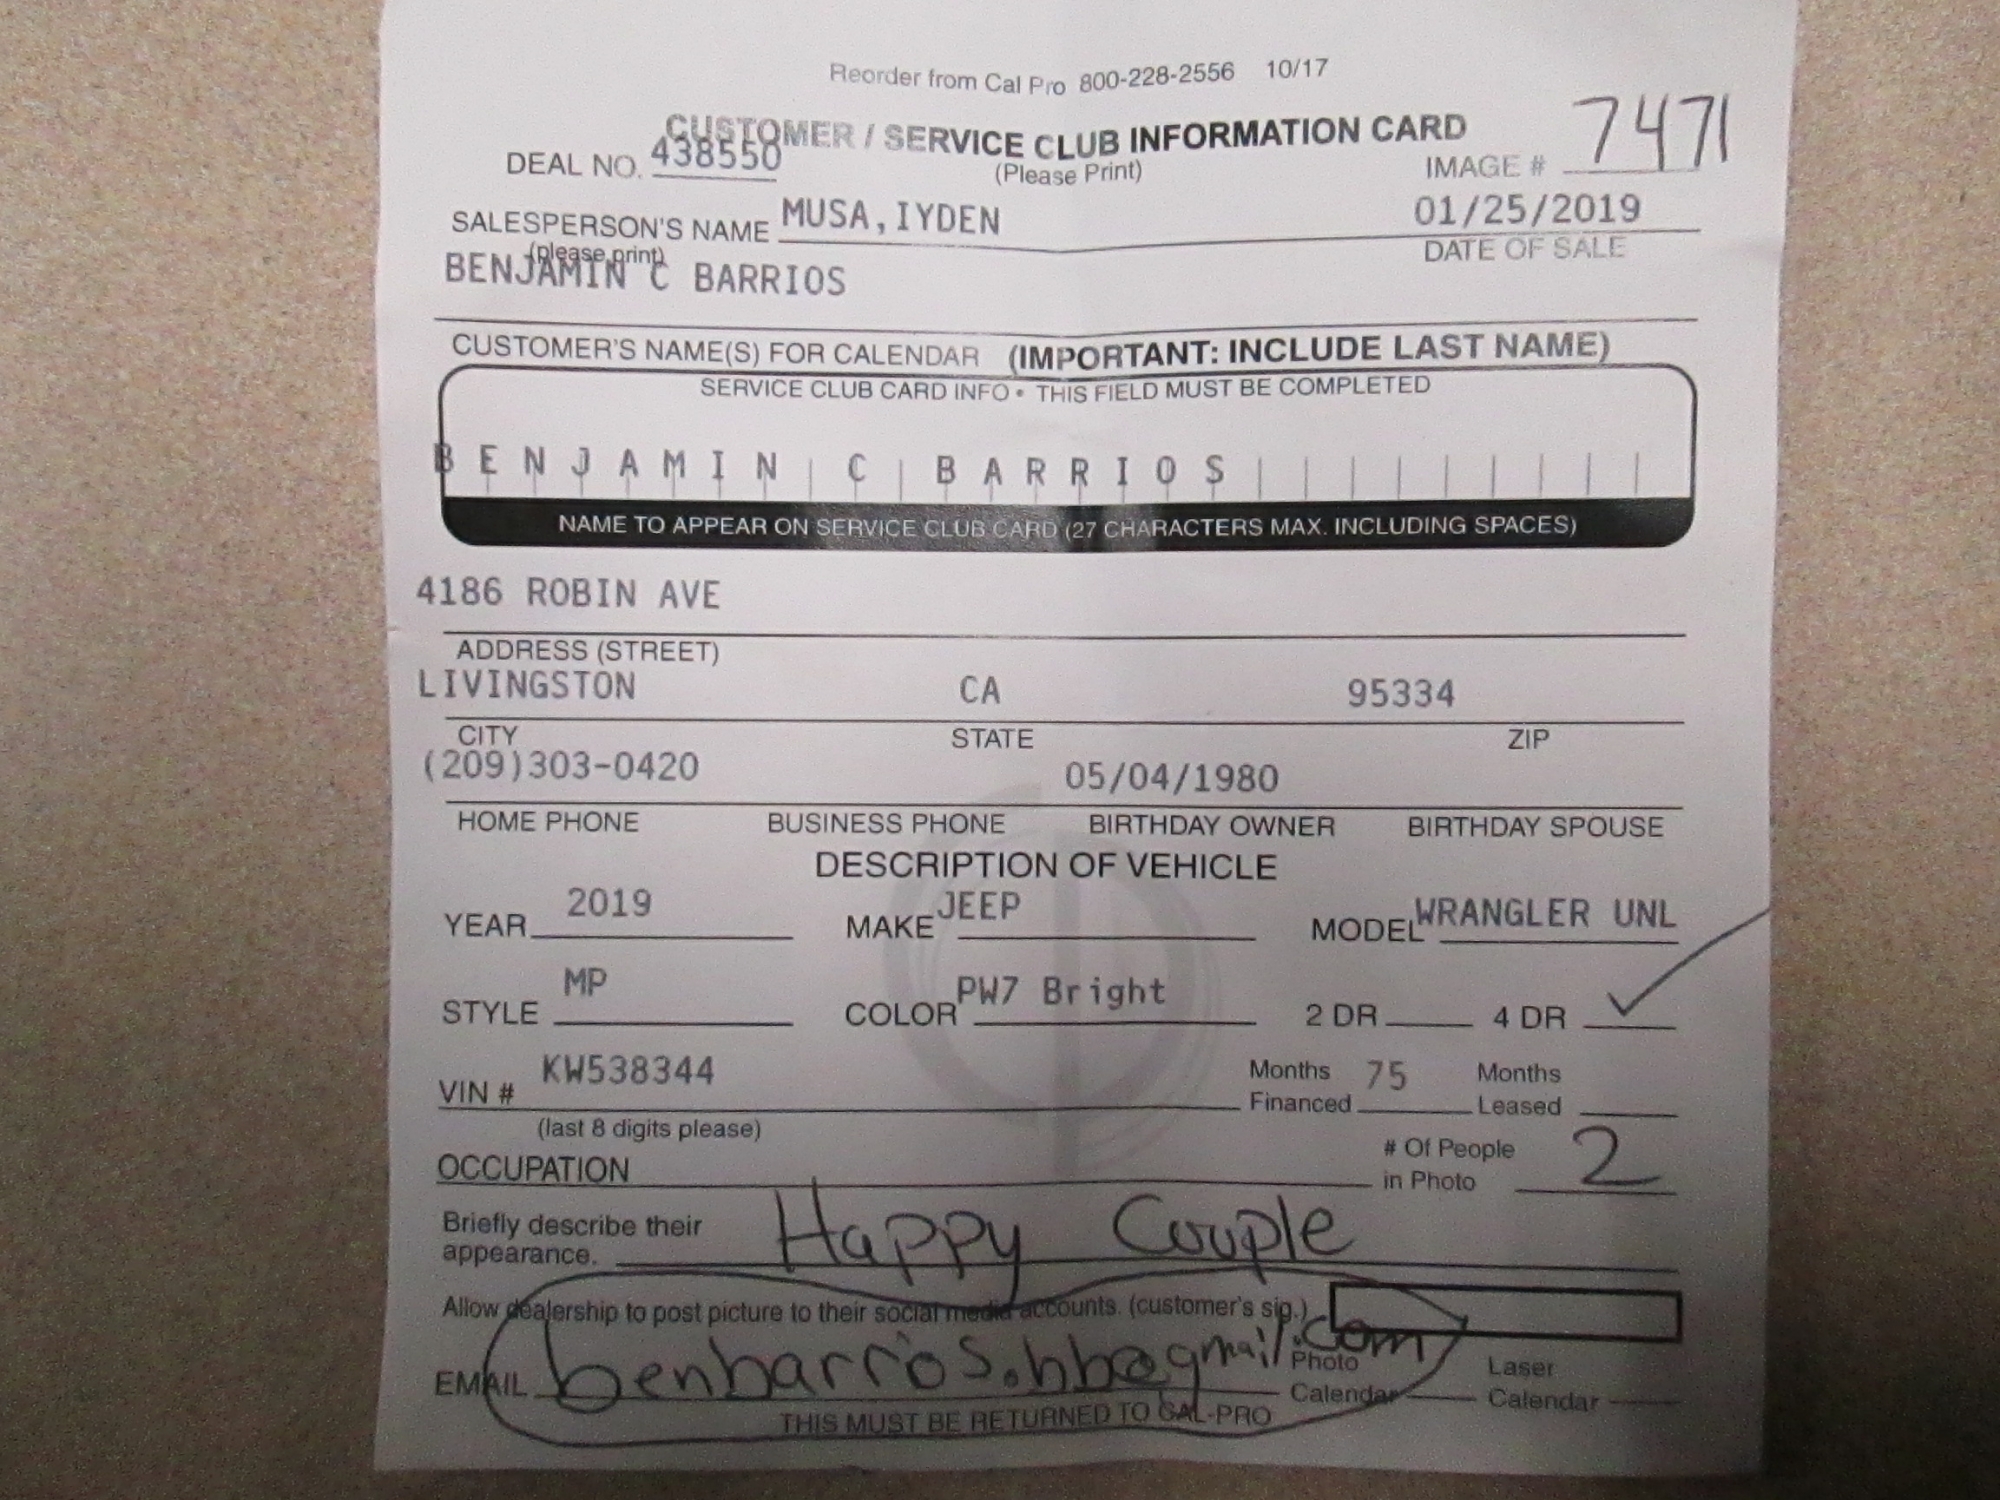 Reorder from Cal Pro 800-228-2556 10/17
CUSTOMER / SERVICE CLUB INFORMATION CARD
(Please Print)
DEAL NO. 438550
IMAGE # 7471
SALESPERSON'S NAME MUSA,IYDEN 01/25/2019
(please print) DATE OF SALE
BENJAMIN C BARRIOS
CUSTOMER'S NAME(S) FOR CALENDAR (IMPORTANT: INCLUDE LAST NAME)
SERVICE CLUB CARD INFO • THIS FIELD MUST BE COMPLETED
BENJAMIN C BARRIOS
NAME TO APPEAR ON SERVICE CLUB CARD (27 CHARACTERS MAX. INCLUDING SPACES)
4186 ROBIN AVE
ADDRESS (STREET)
LIVINGSTON CA 95334
CITY STATE ZIP
(209)303-0420 05/04/1980
HOME PHONE BUSINESS PHONE BIRTHDAY OWNER BIRTHDAY SPOUSE
DESCRIPTION OF VEHICLE
YEAR 2019 MAKE JEEP MODEL WRANGLER UNL
STYLE MP COLOR PW7 Bright 2 DR 4 DR ✓
VIN # KW538344 Months Financed 75 Months Leased
(last 8 digits please)
OCCUPATION # Of People in Photo 2
Briefly describe their appearance. Happy Couple
Allow dealership to post picture to their social media accounts. (customer's sig.)
EMAIL benbarrios.hb@gmail.com Photo Calendar Laser Calendar
THIS MUST BE RETURNED TO CAL-PRO